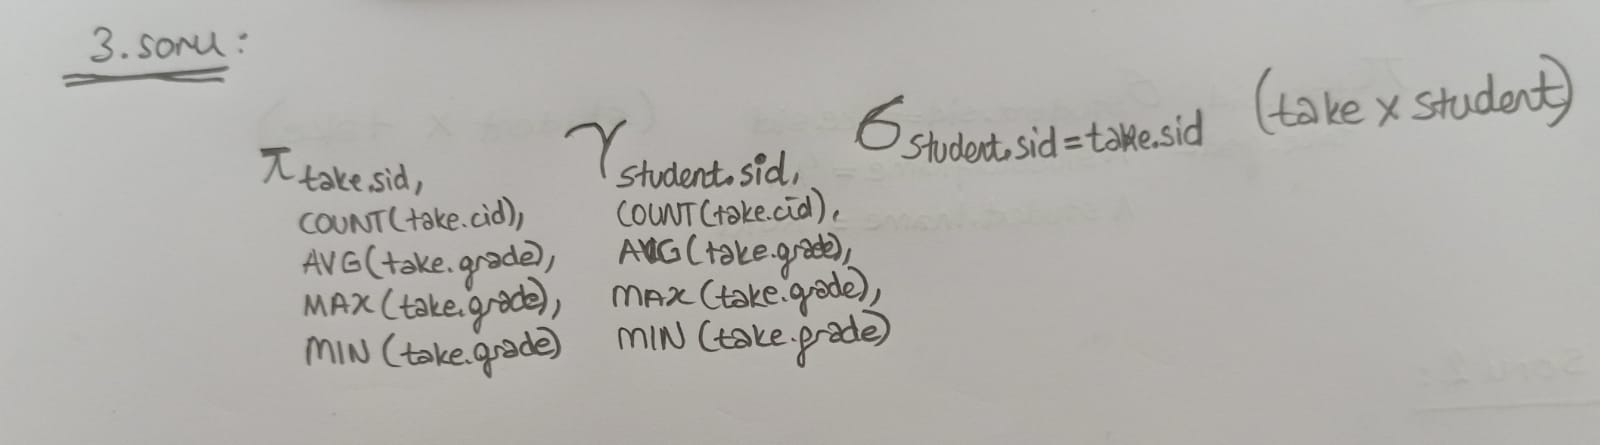 3. soru:
π take.sid, COUNT(take.cid), AVG(take.grade), MAX(take.grade), MIN(take.grade)
γ student.sid, COUNT(take.cid), AVG(take.grade), MAX(take.grade), MIN(take.grade)
σ student.sid=take.sid (take x student)